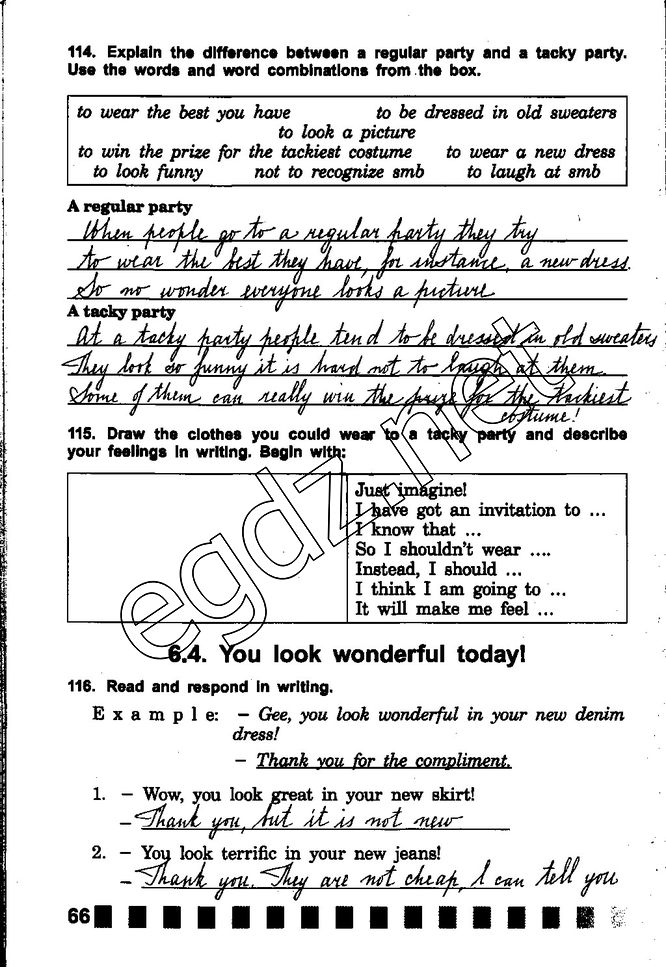 114. Explain the difference between a regular party and a tacky party.
Use the words and word combinations from the box.
to wear the best you have to be dressed in old sweaters
to look a picture
to win the prize for the tackiest costume to wear a new dress
to look funny not to recognize smb to laugh at smb
A regular party
When people go to a regular party they try
to wear the best they have, for instance, a new dress.
So no wonder everyone looks a picture
A tacky party
At a tacky party people tend to be dressed in old sweaters
They look so funny it is hard not to laugh at them.
Some of them can really win the prize for the tackiest
costume!
115. Draw the clothes you could wear to a tacky party and describe
your feelings in writing. Begin with:
Just imagine!
I have got an invitation to ...
I know that ...
So I shouldn't wear ....
Instead, I should ...
I think I am going to ...
It will make me feel ...
egdz.net
6.4. You look wonderful today!
116. Read and respond in writing.
Example: – Gee, you look wonderful in your new denim
dress!
– Thank you for the compliment.
1. – Wow, you look great in your new skirt!
– Thank you, but it is not new
2. – You look terrific in your new jeans!
– Thank you. They are not cheap, I can tell you
66